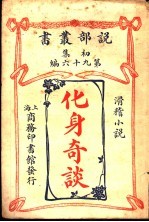 説部叢書
初集
第九十六編
滑稽小説
化身奇談
上海
商務印書館發行